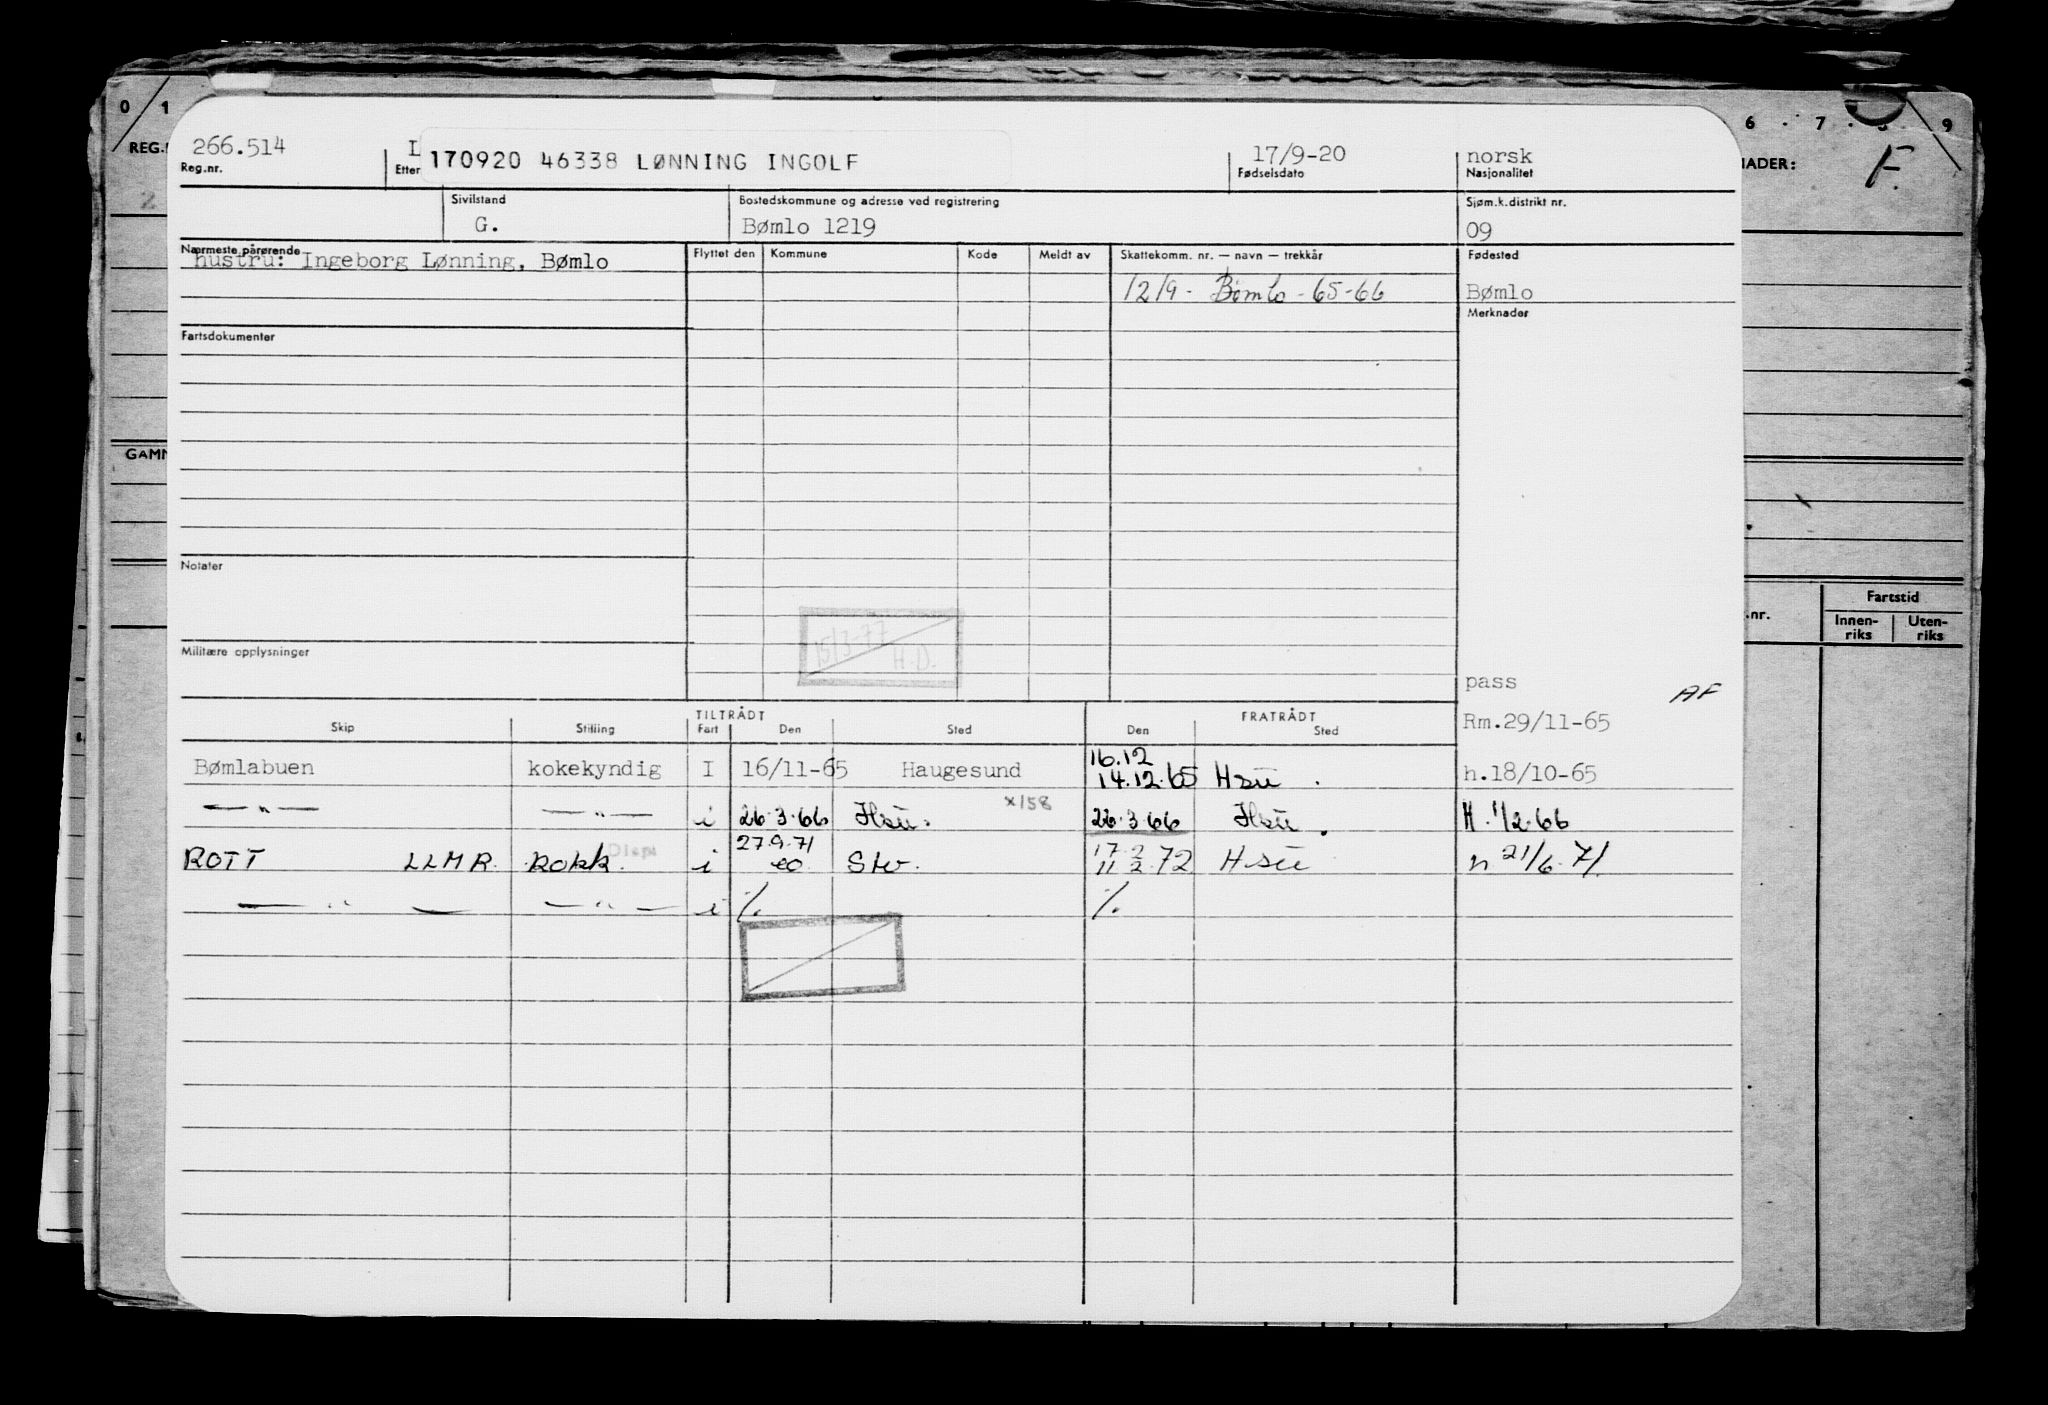 0 1 6 . 7 . 8 . 9
REG. NADER: F.
266.514 L 170920 46338 LØNNING INGOLF 17/9-20 norsk
Reg.nr. Etter Fødselsdato Nasjonalitet
Sivilstand Bostedskommune og adresse ved registrering Sjøm.k.distrikt nr.
G. Bømlo 1219 09
Nærmeste pårørende Flyttet den Kommune Kode Meldt av Skattekomm. nr. — navn — trekkår Fødested
hustru: Ingeborg Lønning, Bømlo
1219 - Bømlo - 65-66 Bømlo
Merknader
Fartsdokumenter
GAMM
Notater
Fartstid
.nr. Innen- Uten-
riks riks
15/3-77
H.D.
Militære opplysninger
pass AF
TILTRÅDT FRATRÅDT Rm.29/11-65
Skip Stilling Fart Den Sted Den Sted
16.12
Bømlabuen kokekyndig I 16/11-65 Haugesund 14.12.65 Hsu . h.18/10-65
— " — — " — i 26.3.66 Hsu. x/58 26.3.66 Hsu . H. 1/2.66
27.9.71 17.2
ROTT LLMR Kokk. i Stv. 11 2.72 Hsu n 21/6.71
— " — — " — i %. %.